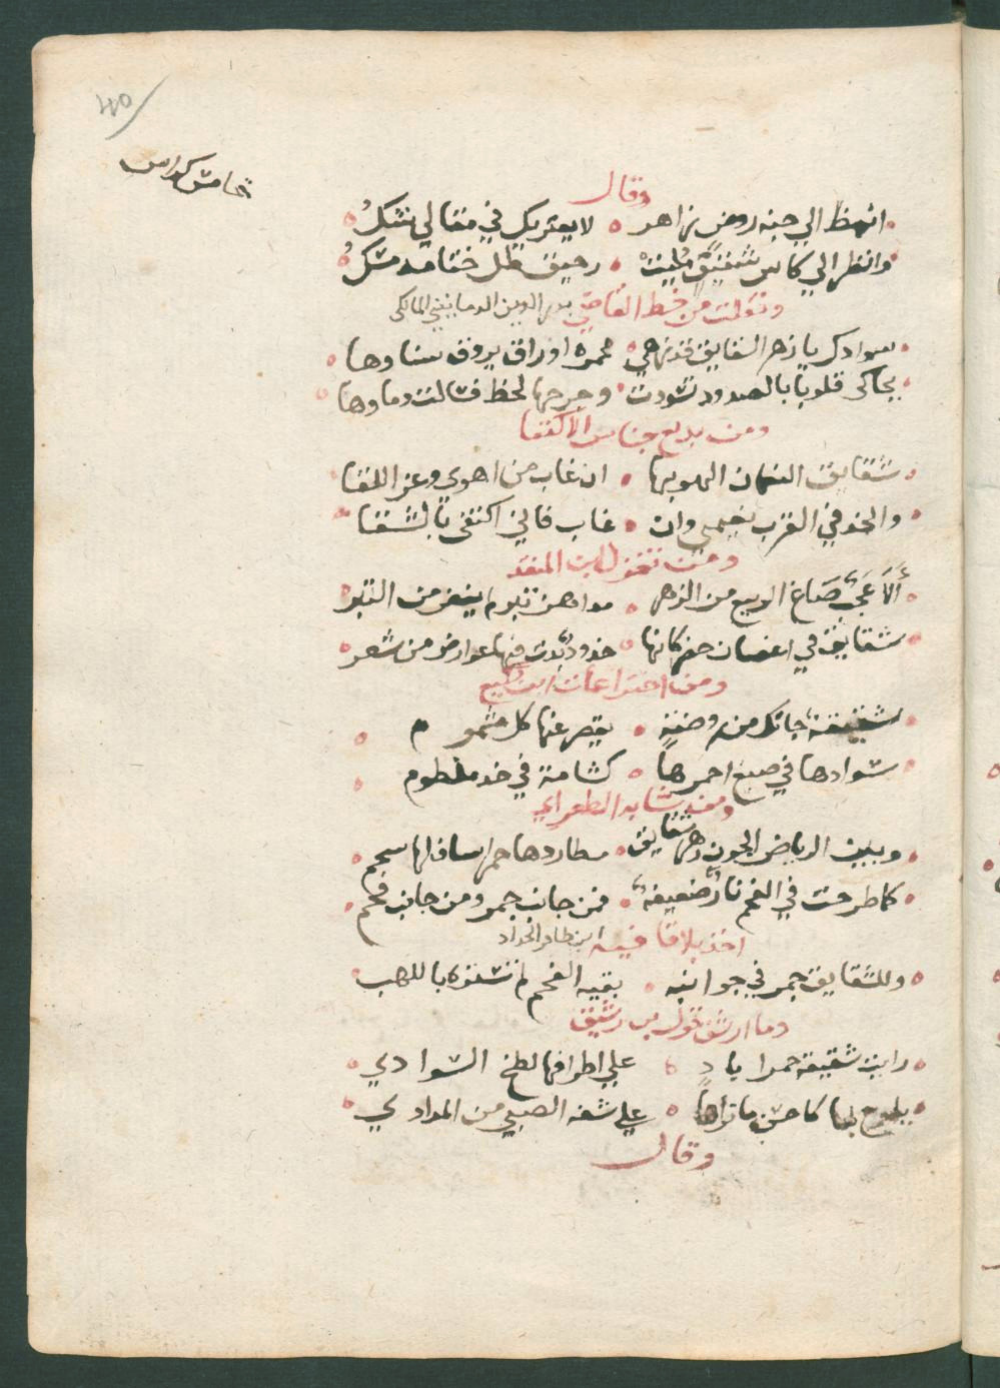 40
خامس كراس
وقال
انهض الي جنه روض زاهر ه لا يعتريك في مقالي شك
وانظر الي كاس شقيق مليت ه رحيق طل ختامه مسك
ونقلت من خط القاضي بدر الدين الدماميني المالكي
سوادك يا زهر الشقايق قد زهي محمره اوراق يروق سناوها
يحاكي قلوبا بالصدود تسودت وجرحها لحظ فسالت دماوها
ومن بديع جناس الاكتفا
شقايق النعمان الهو بها ان غاب من اهوي وعز اللقا
والخد في القرب نعيمي وان غاب فاني اكتفي بالشقا
ومن تغزل ابن المنقد
صاغ الربيع من الزهر مداهن تبر لم ينض من التبر
شقايق في اغصان حضر كانها خدود بدت فيها عوارض من شعر
ومن اختراعات ابن وكيع
شقيقة جاتك من روضة يقصر عنها كل مشموم
سوادها في صبغ احمرها كشامة في خد ملطوم
ومن تشابه الطغراي
وبين الرياض الجون زهر شقايق مطاردها حمر اسافلها سحم
كما طرحت في الفحم نار ضعيفة فمن جانب جمر ومن جانب فحم
اخذ بلاقافيه ابن ظافر الحداد
وللشقايق جمر في جوانبه بقيه الفحم لم تستره باللهب
وما ارشق قول بن رشيق
رايت شقيقة حمرا باد علي اطرافها لطخ السوادي
يلوح بها كاحسن ما تراها علي شفه الصبي من المدادي
وقال